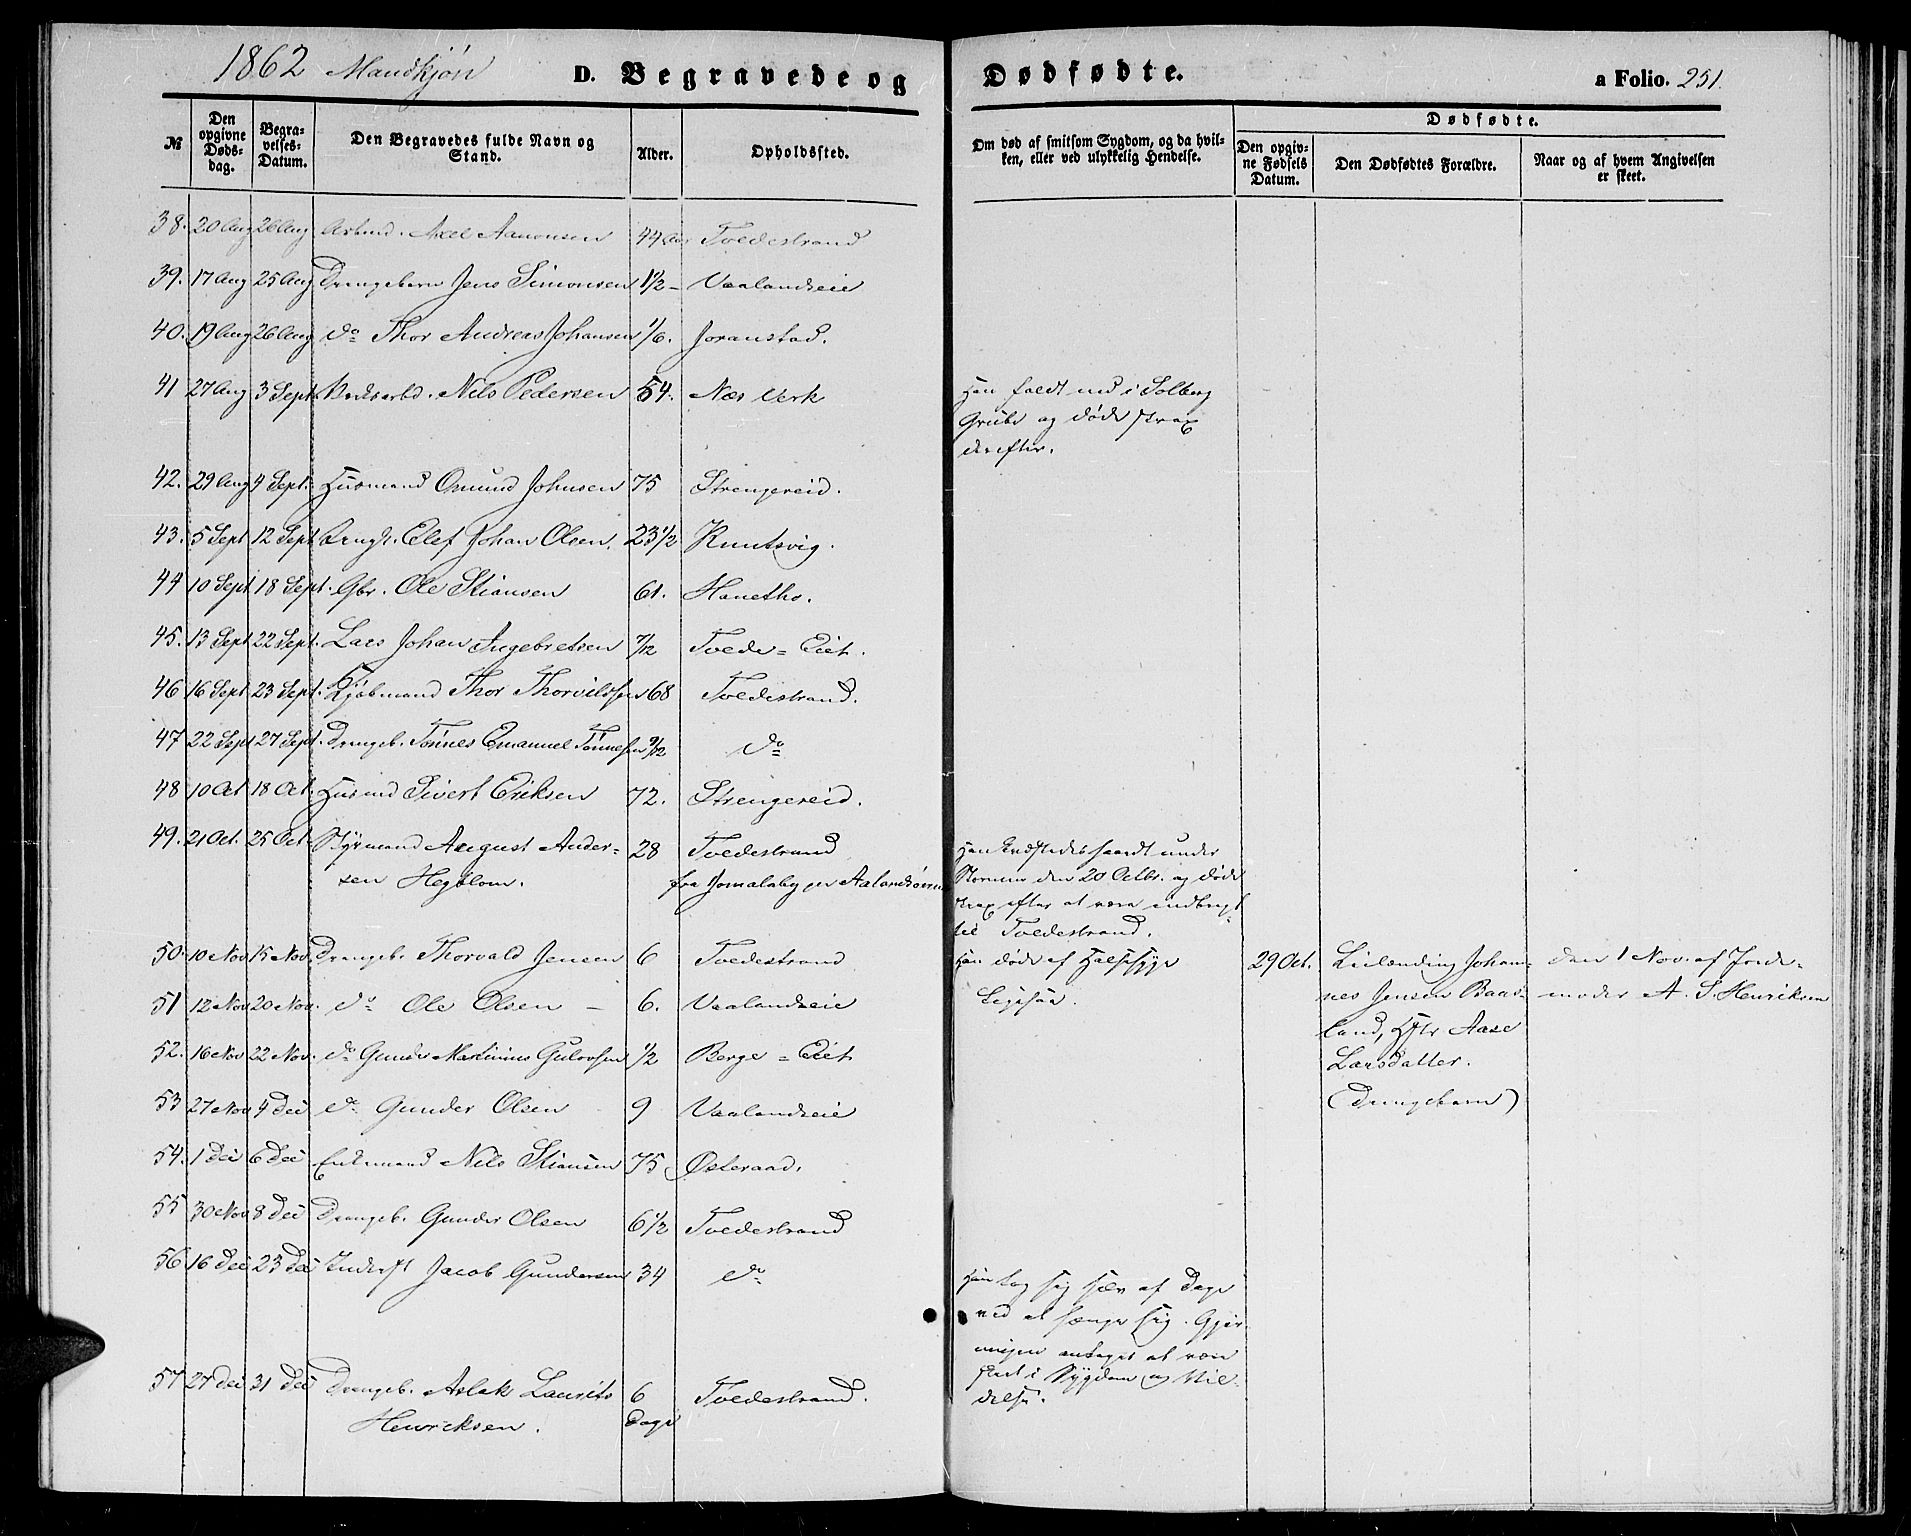 1862 Mandkjøn D. Begravede og Dødfødte. a Folio. 251.
№ Den opgivne Døds-dag. Begra-velses-Datum. Den Begravedes fulde Navn og Stand. Alder. Opholdssted. Om død af smitsom Sygdom, og da hvil-ken, eller ved ulykkelig Hendelse. Dødfødte. Den opgiv-ne Fødsels Datum. Den Dødfødtes Forældre. Naar og af hvem Angivelsen er skeet.
38. 20 Aug 26 Aug Arbmd. Axel Aanonsen 44 Aar Tvedestrand
39. 17 Aug 25 Aug Drengebarn Jens Simonsen 1 1/2 - Vaalandseie
40. 19 Aug 26 Aug do Thor Andreas Johansen 1/6. Joranstad.
41 27 Aug 3 Sept Nils Pedersen 54. Næs Verk Han faldt ned i Solberg
Grube og døde strax
derefter.
42. 29 Aug 4 Sept. Husmand Omund Johnsen 75 Strengereid.
43. 5 Sept 12 Sept Ungk. Elef Johan Olsen. 23 1/2 Knutsvig.
44 10 Sept 18 Sept. Gbr. Ole Stiansen 61. Hanetho.
45. 13 Sept 22 Sept. Lars Johan Ingebretsen 7/12 Tvede=Eiet.
46 16 Sept 23 Sept. Kjøbmand Thor Thorvildsen 68 Tvedestrand.
47 22 Sept 27 Sept. Drengeb. Tønnes Emanuel Tønnesen 9/12 do
48 10 Oct 18 Oct. Husmd Sivert Eriksen 72. Strengereid.
49. 21 Oct. 25 Oct. Styrmand August Ander-28 Tvedestrand Han qvæstedes haardt under
sen Hegblom. fra Jomalaby paa Aalandsøerne Stormen den 20 Octbr. og døde
strax efter at være indbragt
til Tvedestrand.
50. 10 Nov 15 Nov. Drengeb. Thorvald Jensen 6 Tvedestrand Han døde af Halssyge 29 Oct. Leilænding Johan- den 1 Nov. af Jorde-
51 12 Nov 20 Nov. do Ole Olsen - 6. Vaalandseie Ligesaa. nes Jensen Baas- moder A. S. Henriksen
land, Hstr Aase
52. 16 Nov 22 Nov. do Gunder Martinius Gulovsen 1/2 Berge=Eiet Larsdatter.
53 27 Nov 4 Dec do Gunder Olsen 9 Vaalandseie (Drengebarn)
54. 1 Dec 6 Dec Enkemand Nils Stiansen 75 Østeraad.
55 30 Nov 8 Dec Drengeb. Gunder Olsen 6 1/2 Tvedestrand
56 16 Dec 23 Dec Inderst Jacob Gundersen 34 do Han tog sig selv af Dage
ved at hænge sig. Gjer-
ningen antages at være
skeet i Sygdom og Vil-
delse.
57 27 Dec 31 Dec Drengeb. Aslak Laurits 6 Tvedestrand.
Henriksen. Dage